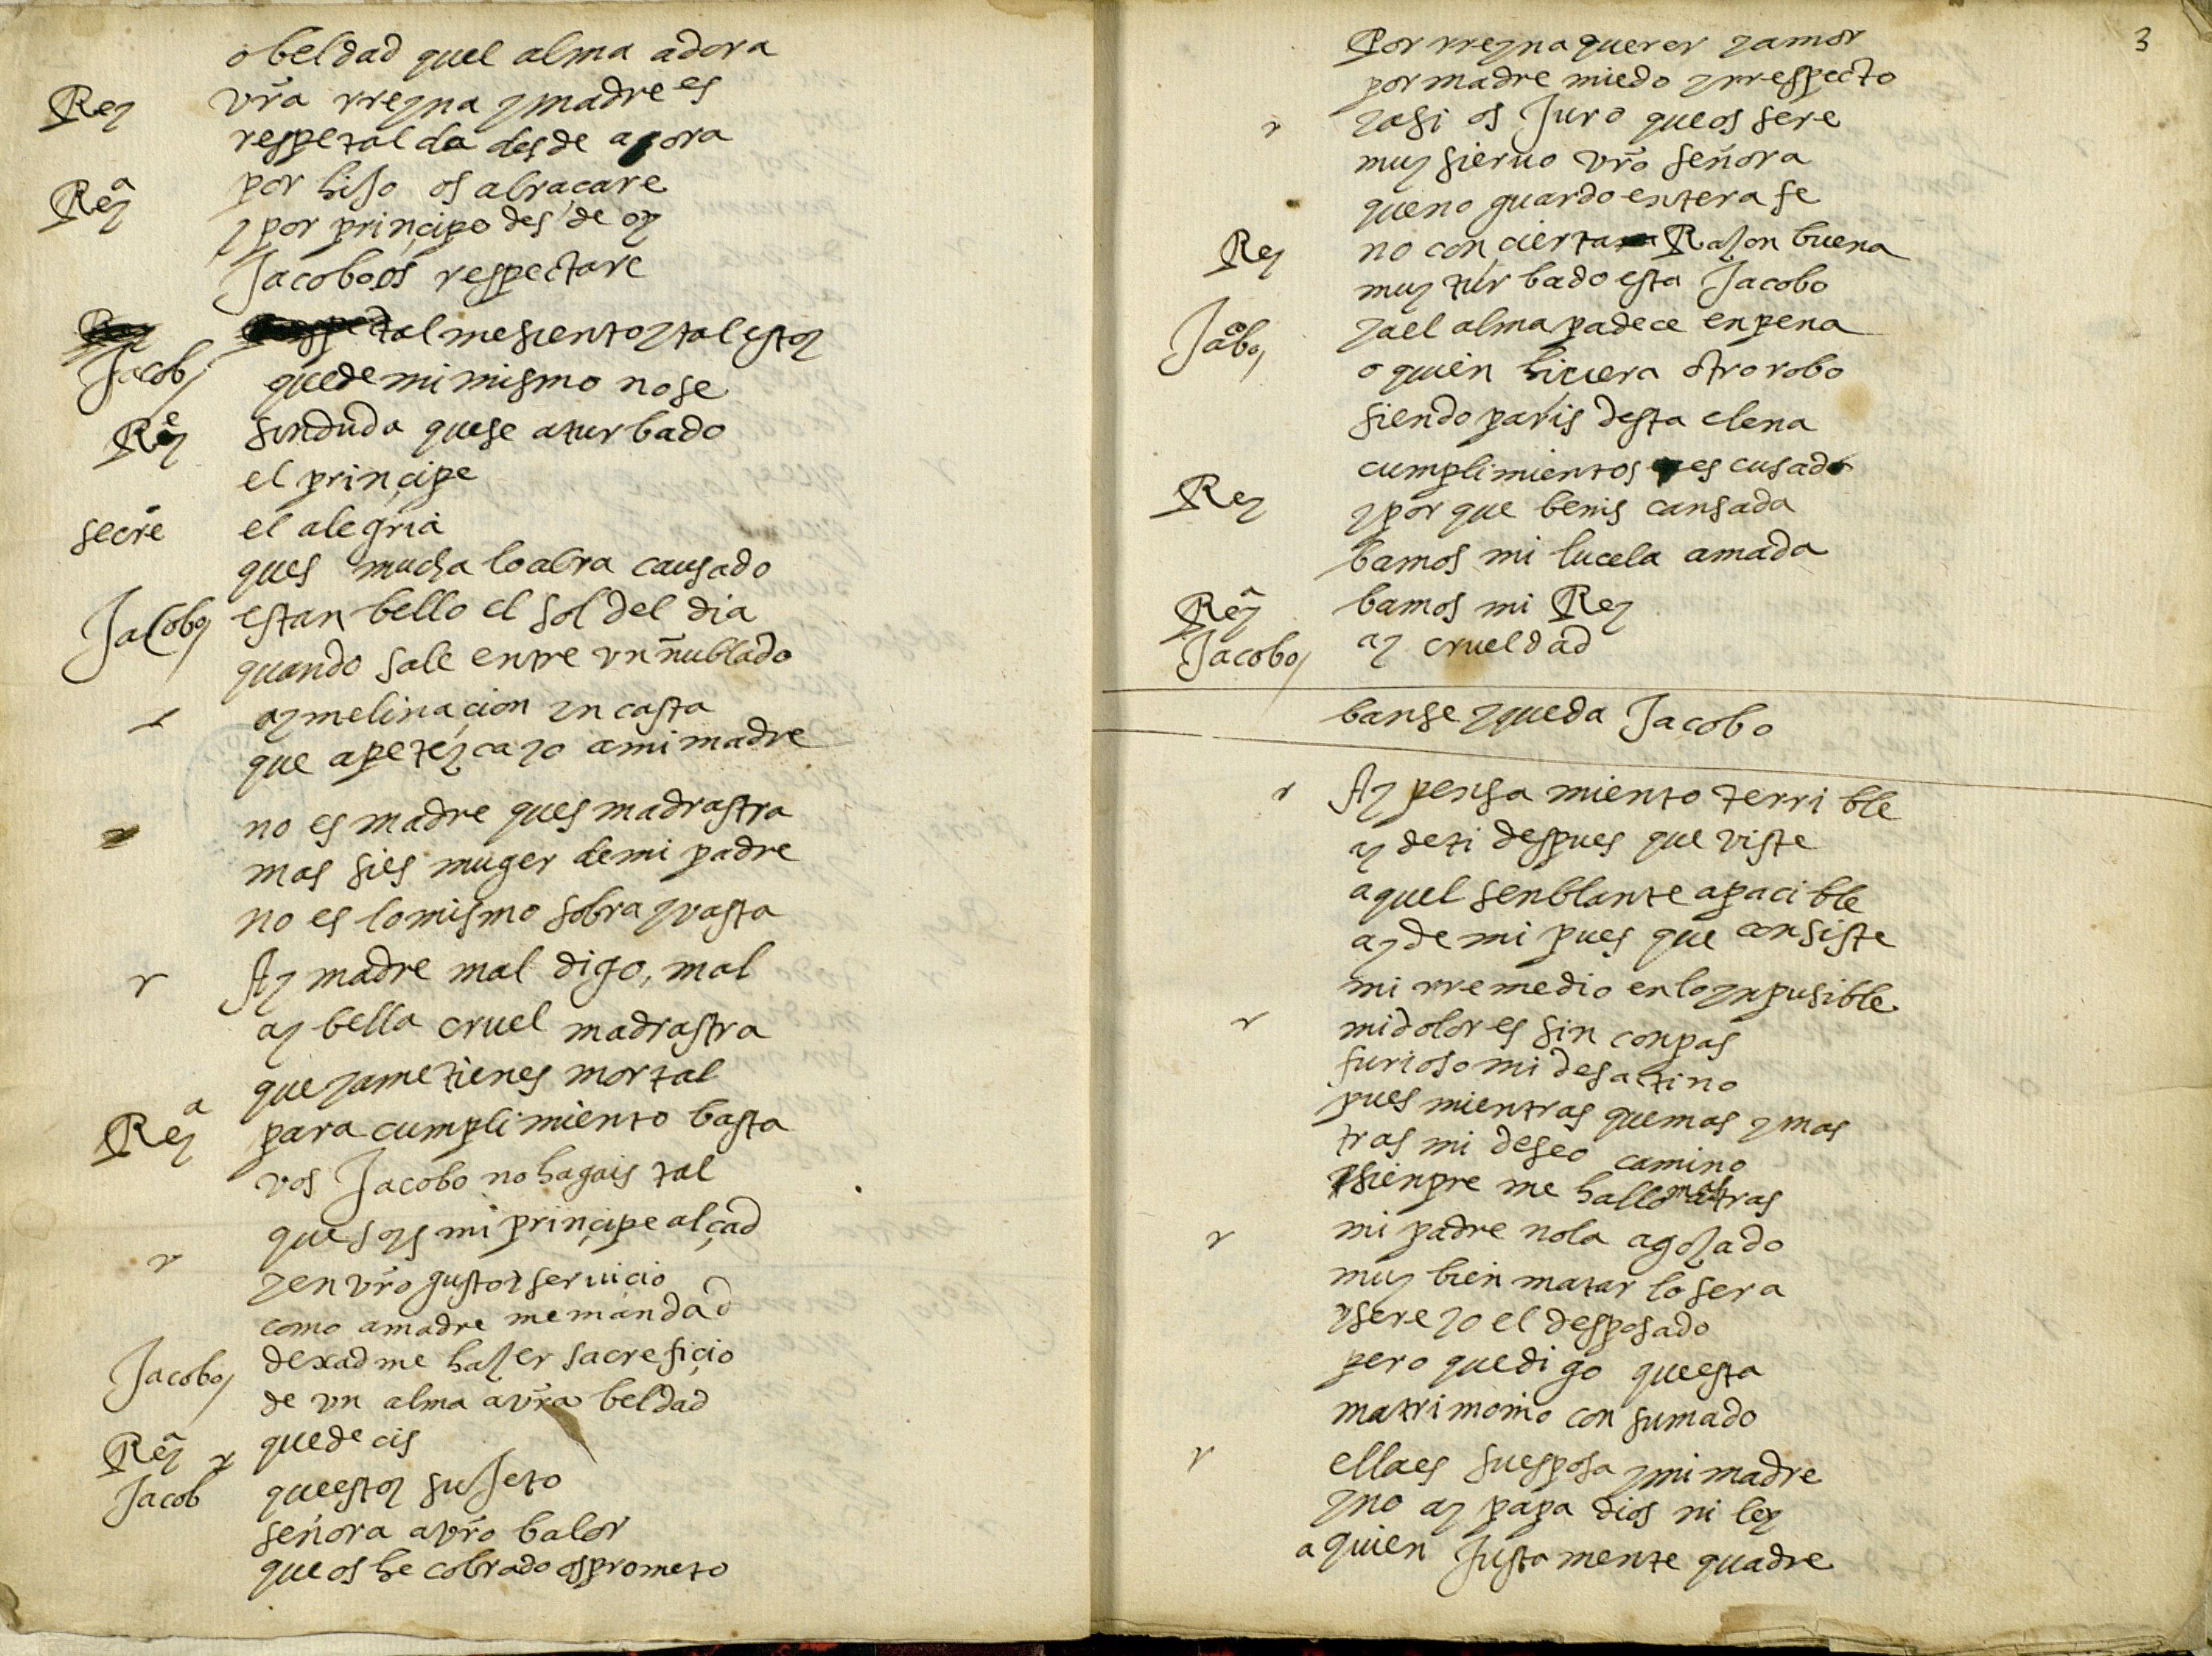 o beldad quel alma adora
Rey vr̃a rreyna y madre es
respetalda desde agora
Reyª por hijo os abraçare
y por prinçipe des de oy
Jacobo os respectare
Jacob tal me siento y tal estoy
que de mi mismo no se
Rey sin duda que se a turbado
el prinçipe
secre el alegria
ques mucha lo abra causado
Jacobo es tan bello el sol del dia
quando sale entre vn ñublado
ay melinaçion yn casta
que apetezca yo a mi madre
no es madre ques madrastra
mas si es muger de mi padre
no es lo mismo sobra y vasta
Ay madre mal digo, mal
ay bella cruel madrastra
que ya me tienes mortal
Reyª para cumplimiento basta
vos Jacobo no hagais tal
que soys mi prinçipe alçad
y en vr̃o gusto y seruiçio
como a madre me mandad
Jacobo dexadme hazer sacrefiçio
de vn alma a vr̃a beldad
Reyª que decis
Jacob que estoy sujeto
señora a vr̃o balor
que os he cobrado os prometo
3
Por rreyna querer y amor
por madre miedo y rrespecto
y asi os Juro que os sere
muy sieruo vr̃o señora
que no guardo entera fe
Rey no conçierta Razon buena
muy turbado esta Jacobo
Jacobo ya el alma padece en pena
o quien hiciera otro robo
siendo paris desta elena
cumplimientos es cusado
Rey y por que benis cansada
bamos mi lucela amada
Reyª bamos mi Rey
Jacobo ay crueldad
banse y queda Jacobo
Ay pensamiento terrible
ay de ti despues que viste
aquel senblante apacible
ay de mi pues que consiste
mi rremedio en lo ynpusible
mi dolor es sin conpas
furioso mi desatino
pues mientras que mas y mas
tras mi deseo camino
sienpre me hallo mas atras
mi padre no la a gozado
muy bien matar lo sera
y sere yo el desposado
pero que digo que esta
matrimonio consumado
ella es su esposa y mi madre
y no ay papa dios ni ley
a quien Justamente quadre